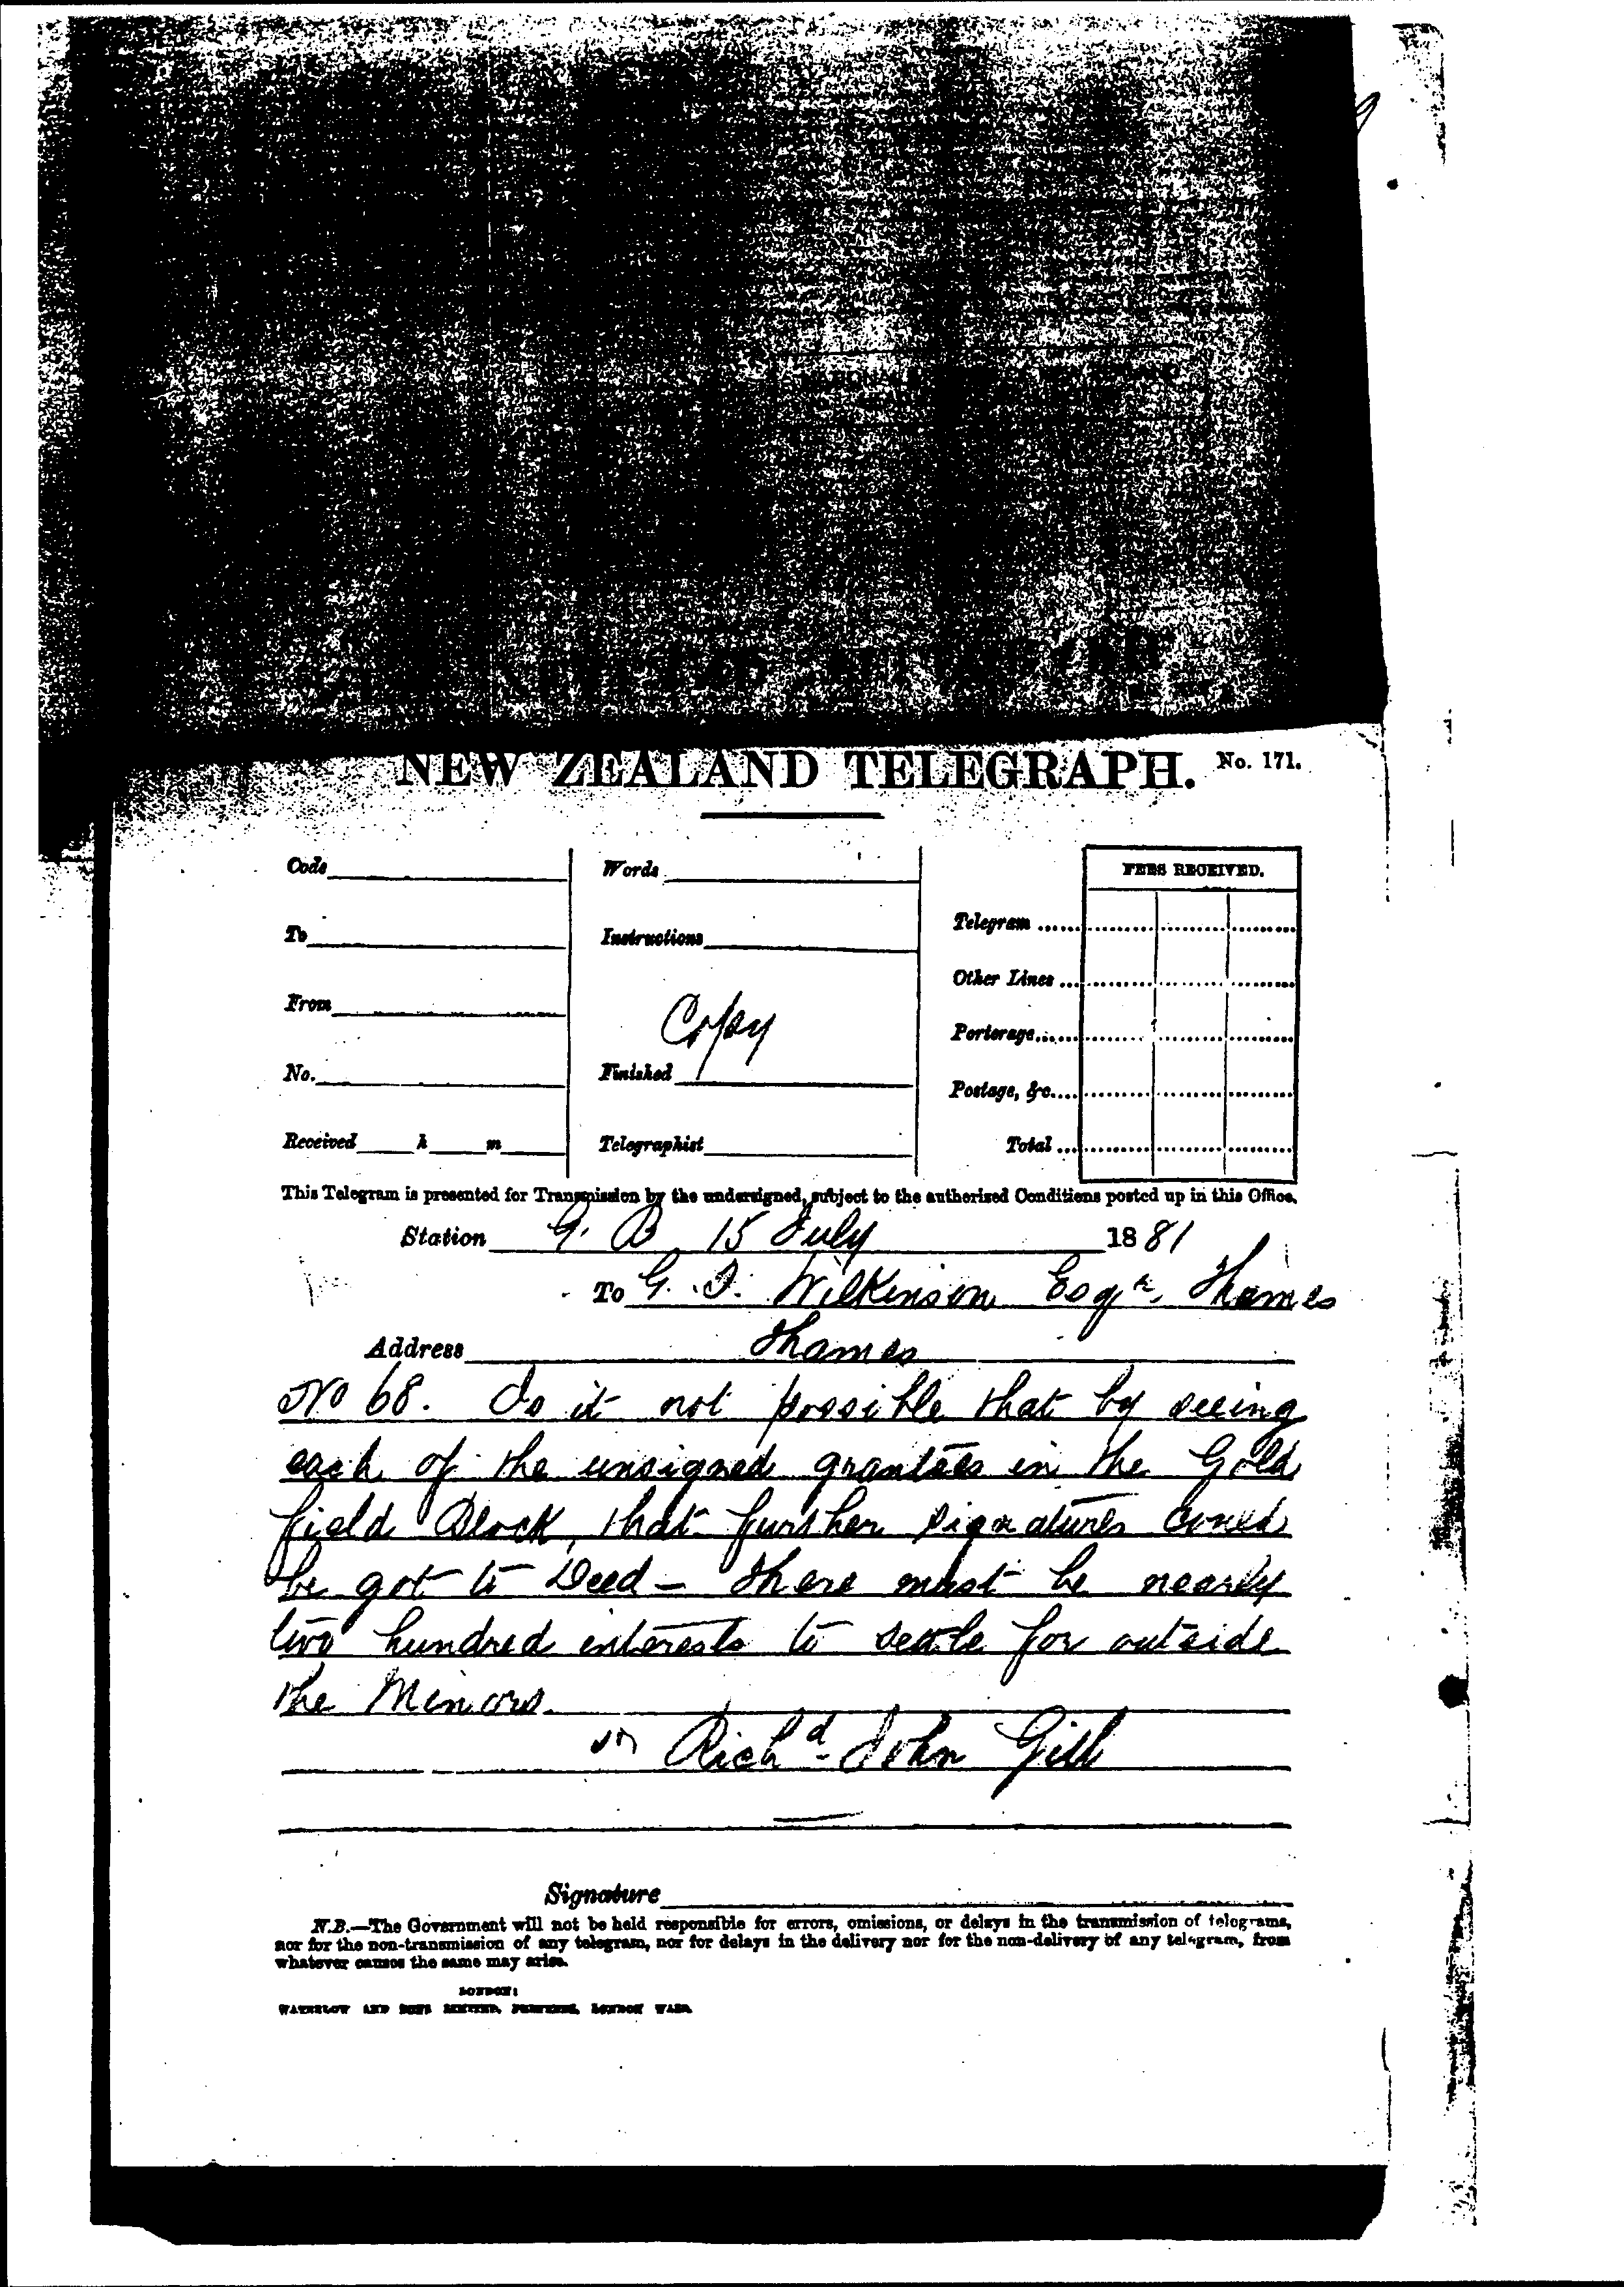 NEW ZEALAND TELEGRAPH. No. 171.
Code
Words
FEES RECEIVED.
To
Instructions
Telegram
Other Lines
From
Copy
Porterage
No.
Finished
Postage, &c.
Received h m
Telegraphist
Total
This Telegram is presented for Transmission by the undersigned, subject to the authorised Conditions posted up in this Office.
Station G. B 15 July 1881
To G. T. Wilkinson Esqr. Thames
Address Thames
No 68. Is it not possible that by seeing
each of the unsigned grantees in the Gold
field Block, that further signatures could
be got to Deed - There must be nearly
two hundred interests to settle for outside
the Minors.
Richd. John Gill
Signature
N.B.—The Government will not be held responsible for errors, omissions, or delays in the transmission of telegrams,
nor for the non-transmission of any telegram, nor for delays in the delivery nor for the non-delivery of any telegram, from
whatever causes the same may arise.
LONDON:
WATERLOW AND SONS LIMITED, PRINTERS, LONDON WALL